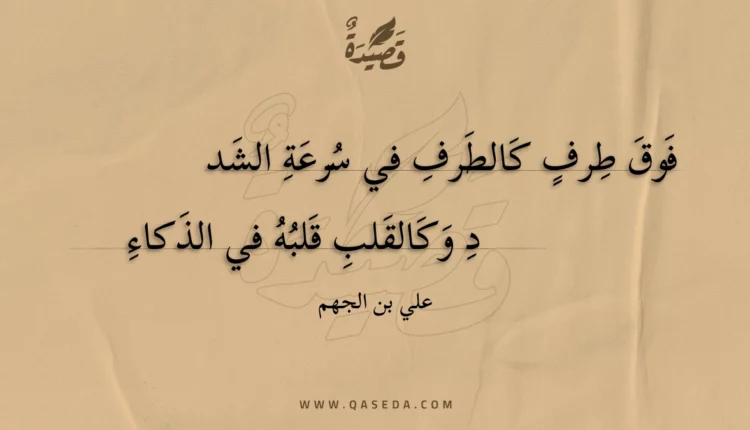 قَصِيدَةٌ
فَوقَ طِرفٍ كَالطَرفِ في سُرعَةِ الشَد
دِ وَكَالقَلبِ قَلبُهُ في الذَكاءِ
علي بن الجهم
WWW.QASEDA.COM